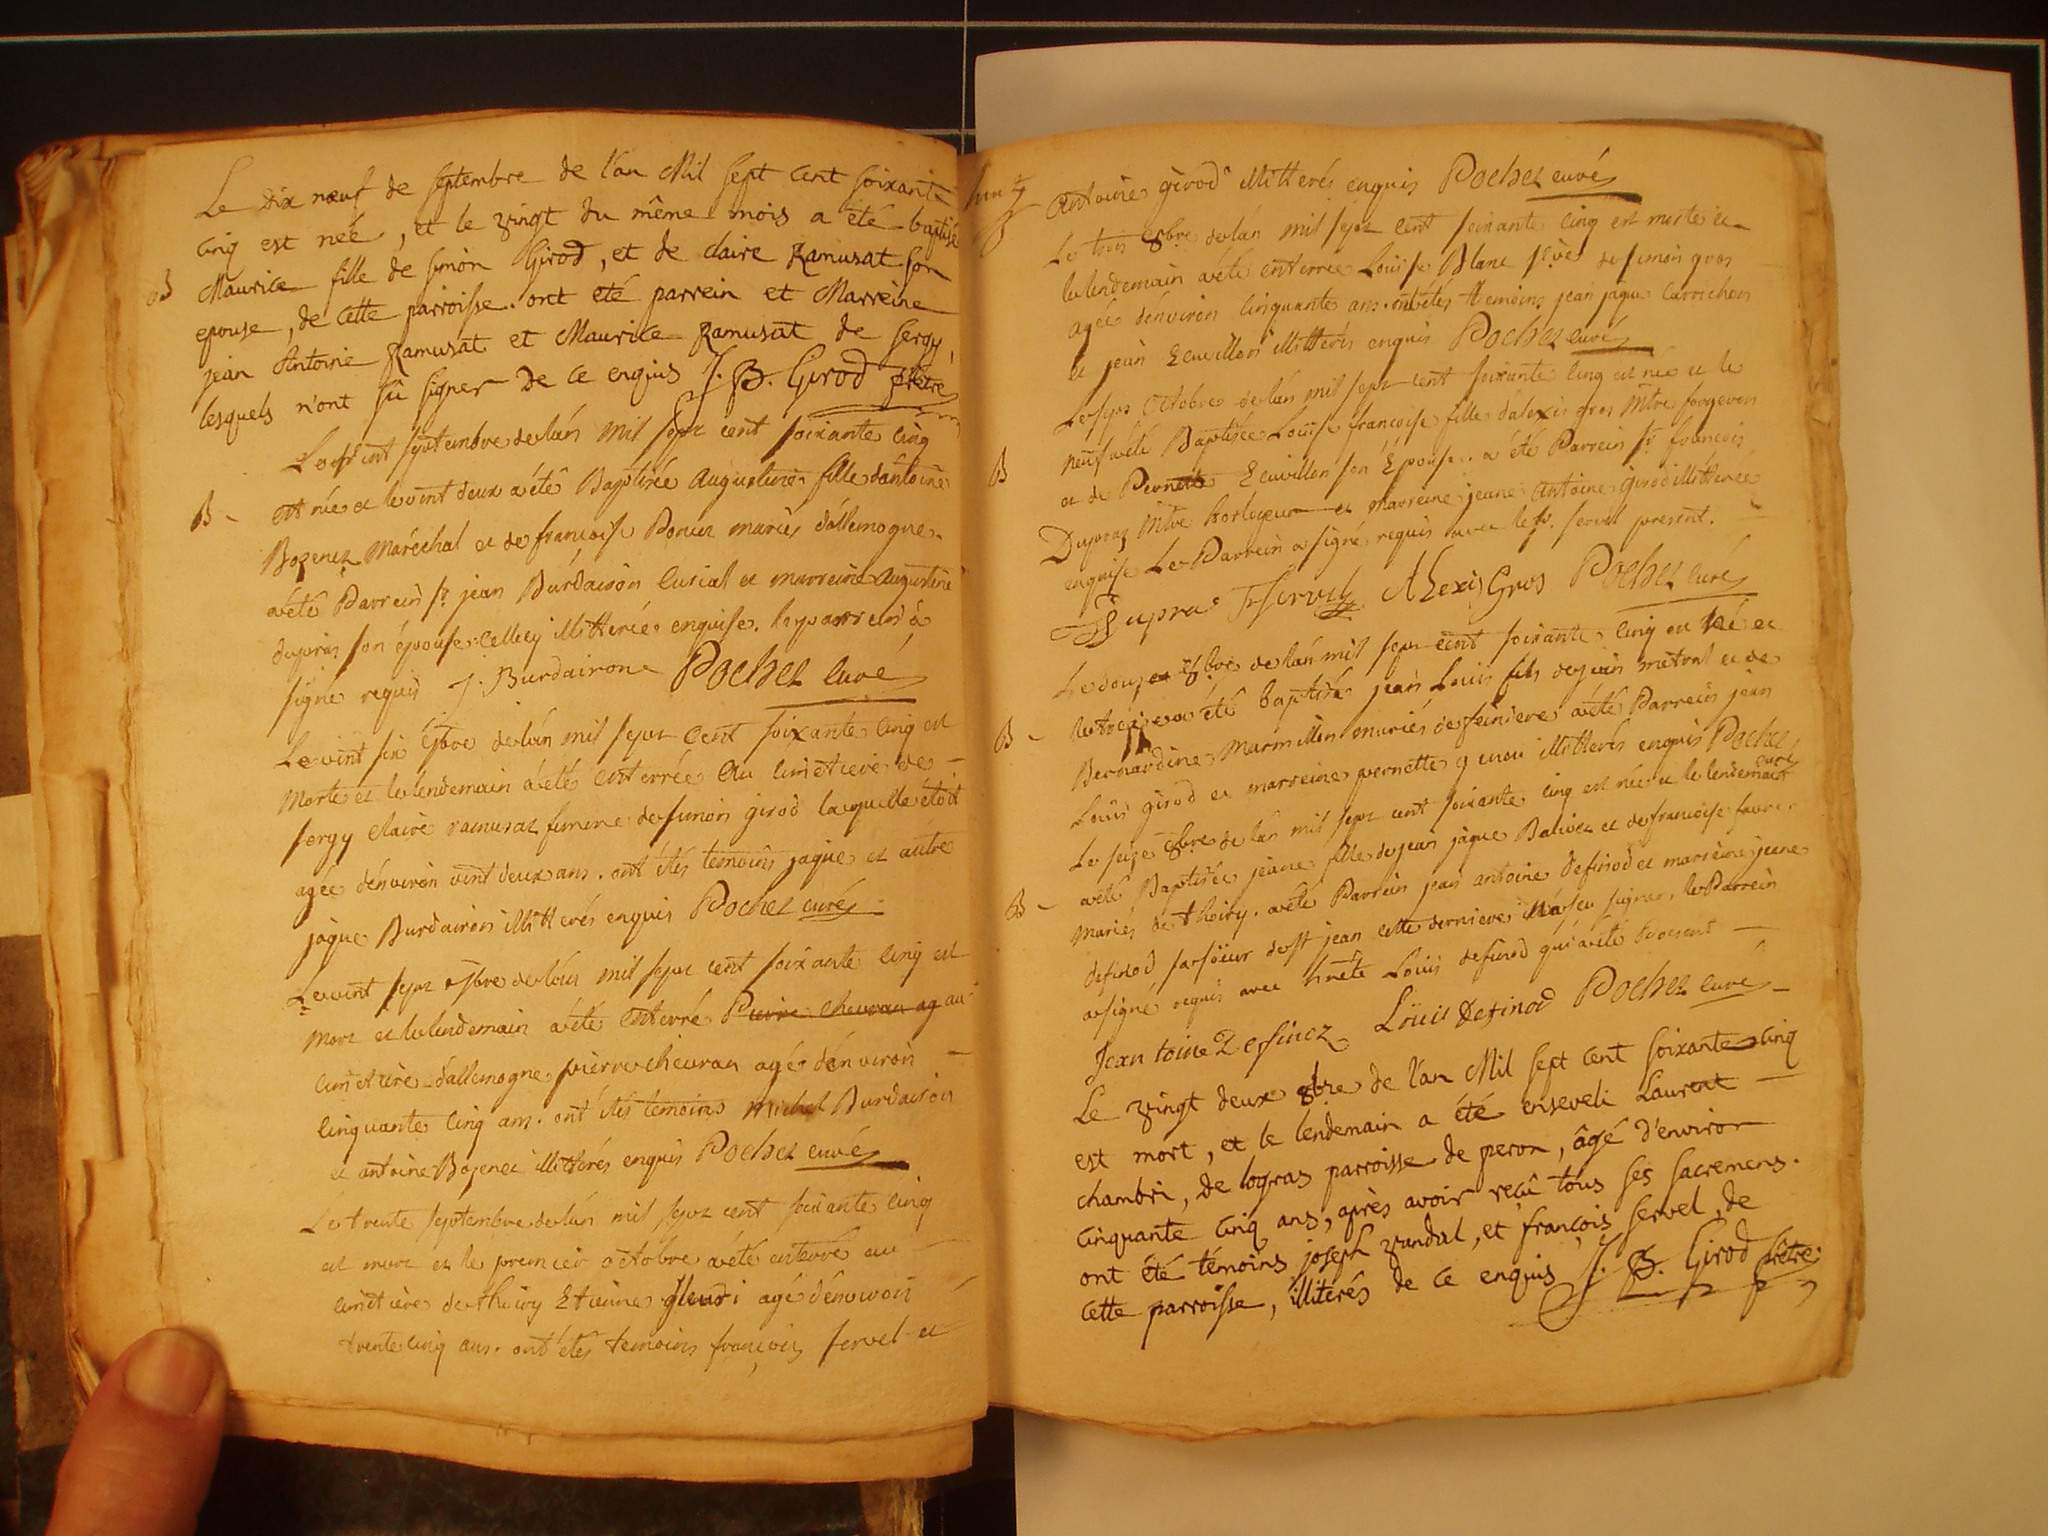 Le dix nœuf de septembre de l'an Mil sept cent soixante
cinq est neé, et le vingt du même mois a été baptisé
B Maurice fille de simon Girod, et de claire Ramusat son
epouse, de cette parroisse. ont été parrein et Marreine
jean Antoine Ramusat et Maurice Ramusat de sergy,
lesquels n'ont sû signer de ce enquis J. B. Girod prêtre
Le vint septembre de lán mil sept cent soixante cinq
B - est née et le vint deux a été Baptisée augustine fille dántoine
Bozenez Maréchal et de francoise Poncet mariés dállemogne.
a été Parrein sr jean Burdairon lurial et marreine augustine
dupras son épouse celle cy illitterée enquise. le parrein a
signe requis J. Burdairon Pochet curé
Le vint six 7bre de lán mil sept cent soixante cinq est
Morte et le lendemain a été enterrée au cimetiere de
sergy claire ramusaz femme de simon girod laquelle étoit
agée dénviron vint deux ans. ont étés temoins jaque et autre
jaque Burdairon illitterés enquis Pochet curé
Le vint sept 7bre de lán mil sept cent soixante cinq est
Mort et le lendemain a été enterré Pierre chevran ag au
cimetiere dállemogne pierre chevran agé dénviron
cinquante cinq ans. ont étés temoins Michel Burdairon
et antoine Bozenez illitterés enquis Pochet curé
Le trente septembre de lán mil sept cent soixante cinq
est mort et le premier octobre a été enterré au
cimetiere de thoiry Etienne agé dénviron
trente cinq ans. ont étés temoins françois servel et
Antoine girod illitterés enquis Pochet curé
Le trois 8bre de lán mil sept cent soixante cinq est morte et
le lendemain a été enterrée Louise Blanc de simon gros
agée dénviron cinquante ans. ont étés témoins jean jaque
et jean Ecuillon illitterés enquis Pochet curé
Le sept Octobre de lán mil sept cent soixante cinq est née et le
neuf a été Baptisée Louise francoise fille dálexis gros Mtre forgeron
B et de Pernette Ecuvillon son Epouse. a été Parrein sr francois
Dupraz Mtre horlogeur et marreine jeane Antoine girod illitterée
enquise Le Parrein a signé requis avec le sr. servel present.
Dupra F Servel Alexis Gros Pochet curé
Le douze 8bre de lán mil sept cent soixante cinq est né et
le treize a été baptisé jean Louis fils de jean métral et de
B - Bernardine Marmillin mariés de feiniere a été Parrein jean
Louis girod et marreine pernette illitterés enquis Pochet
curé
Le seize 8bre de lán mil sept cent soixante cinq est née et le lendemain
a été Baptisée jeane fille de jean jâque Balivet et de francoise favre
B - Mariés de thoiry. a été Parrein jean antoine definod et marreine jeane
definod de st jean cette derniere n'a seu signer, le Parrein
a signé requis avec hnête Louis definod qui a été present
Jean toine Definez Loüis Definod Pochet curé
Le vingt deux 8bre de l'an Mil sept cent soixante cinq
est mort, et le lendemain a été enseveli Laurent
chambri, de logras parroisse de peron, âgé d'environ
cinquante cinq ans, après avoir reçû tous ses sacremens.
ont été témoins joseph vandal, et françois servel, de
cette parroisse, illiterés de ce enquis J. B. Girod prêtre